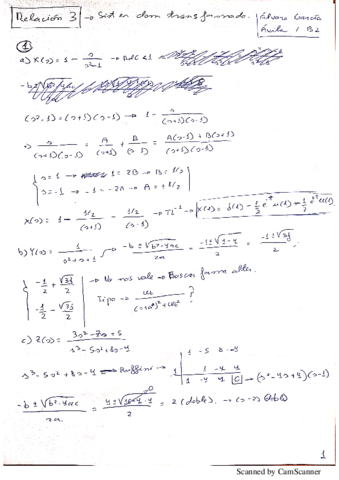 Relación 3 → Sist en dom transformado.
Álvaro García
Aula 1 B2
1
a) X(s) = 1 - s/(s²-1) → RdC
(s²-1) = (s+1)(s-1) → 1 - s/((s+1)(s-1))
s/((s+1)(s-1)) = A/(s+1) + B/(s-1) = (A(s-1) + B(s+1))/((s+1)(s-1))
s=1 → 1 = 2B → B = 1/2
s=-1 → -1 = -2A → A = +1/2
X(s) = 1 - (1/2)/(s+1) - (1/2)/(s-1) → TL⁻¹ →
b) Y(s) = 1/(s²+s+1) → (-b ± √(b²-4ac))/2a = (-1 ± √(1-4))/2 = (-1 ± √3j)/2
-1/2 + √3j/2
-1/2 - √3j/2
→ No nos vale → Buscar forma alter.
Tipo → ?
c) Z(s) = (3s²-7s+5)/(s³-5s²+8s-4)
s³-5s²+8s-4 → Ruffini →
1 -5 8 -4
1 1 -4 4
1 -4 4 0 → (s²-4s+4)(s-1)
(-b ± √(b²-4ac))/2a = (4 ± √(16-4·4))/2 = 2 (doble) → (s-2) (doble)
1
Scanned by CamScanner